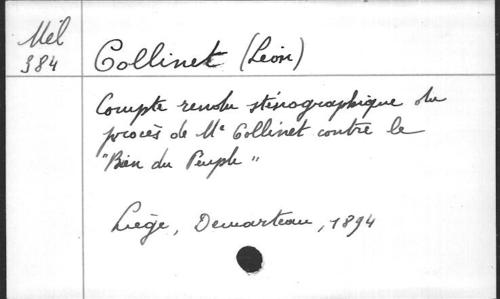 Mél
384
Collinet (Léon)
Compte rendu sténographique du
procès de Me Collinet contre le
"Bien du Peuple"
Liège, Demarteau, 1894